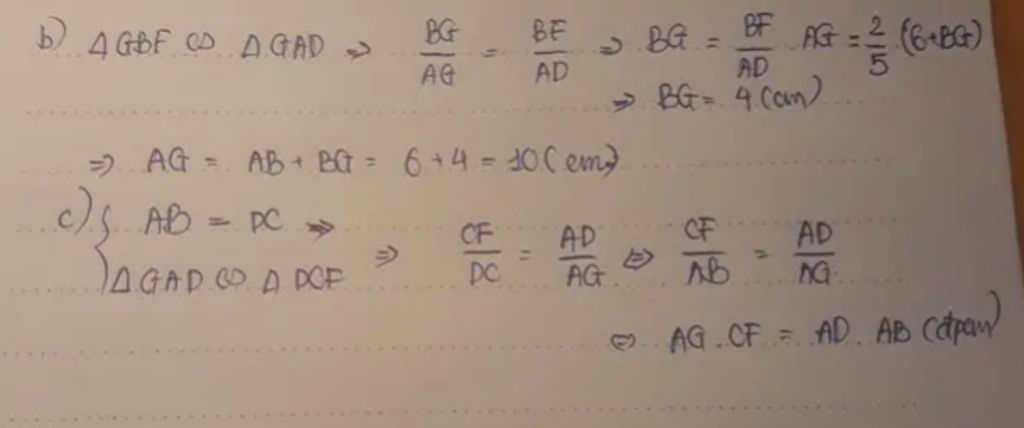 b) ΔGBF ∽ ΔGAD => BG/AG = BF/AD => BG = BF/AD AG = 2/5 (6+BG)
=> BG = 4 (cm)
=> AG = AB + BG = 6 + 4 = 10 (cm)
c) { AB = DC => 
ΔGAD ∽ Δ DCF => CF/DC = AD/AG <=> CF/AB = AD/AG
<=> AG . CF = AD . AB (đpcm)